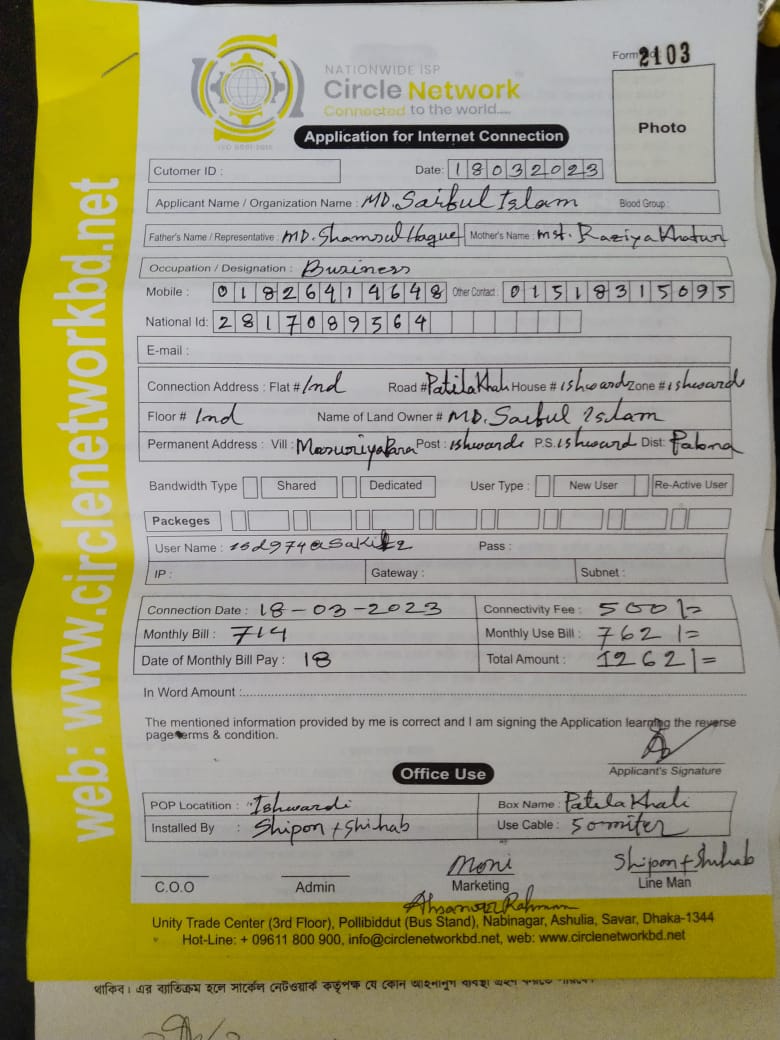 web: www.circlenetworkbd.net
NATIONWIDE ISP
Circle Network
Connected to the world....
ISO 9001:2015
Form 2103
Application for Internet Connection
Photo
Cutomer ID :
Date: 18032023
Applicant Name / Organization Name : MD. Saiful Islam Blood Group :
Father's Name / Representative : MD. Shamsul Haque Mother's Name : mst. Raziya Khatun
Occupation / Designation : Business
Mobile : 01826414648 Other Contact : 01518315095
National Id: 2817089564
E-mail :
Connection Address : Flat # 1nd Road # Patila Khali House # ishward Zone # ishward
Floor # 1nd Name of Land Owner # MD. Saiful Islam
Permanent Address : Vill : Masuriya Para Post : ishwardi P.S. ishward Dist: Pabna
Bandwidth Type Shared Dedicated User Type : New User Re-Active User
Packeges
User Name : Pass :
IP : Gateway : Subnet :
Connection Date : 18-03-2023 Connectivity Fee : 500/=
Monthly Bill : 714 Monthly Use Bill : 762/=
Date of Monthly Bill Pay : 18 Total Amount : 1262/=
In Word Amount :
The mentioned information provided by me is correct and I am signing the Application learning the reverse
page terms & condition.
Applicant's Signature
Office Use
POP Locatition : Ishwardi Box Name : Patila Khali
Installed By : Shipon + Shihab Use Cable : 50 miter
Moni Shipon + Shihab
C.O.O Admin Marketing Line Man
Ahsanur Rahman
Unity Trade Center (3rd Floor), Pollibiddut (Bus Stand), Nabinagar, Ashulia, Savar, Dhaka-1344
Hot-Line: + 09611 800 900, info@circlenetworkbd.net, web: www.circlenetworkbd.net
থাকিব। এর ব্যতিক্রম হলে সার্কেল নেটওয়ার্ক কর্তৃপক্ষ যে কোন আইনানুগ ব্যবস্থা